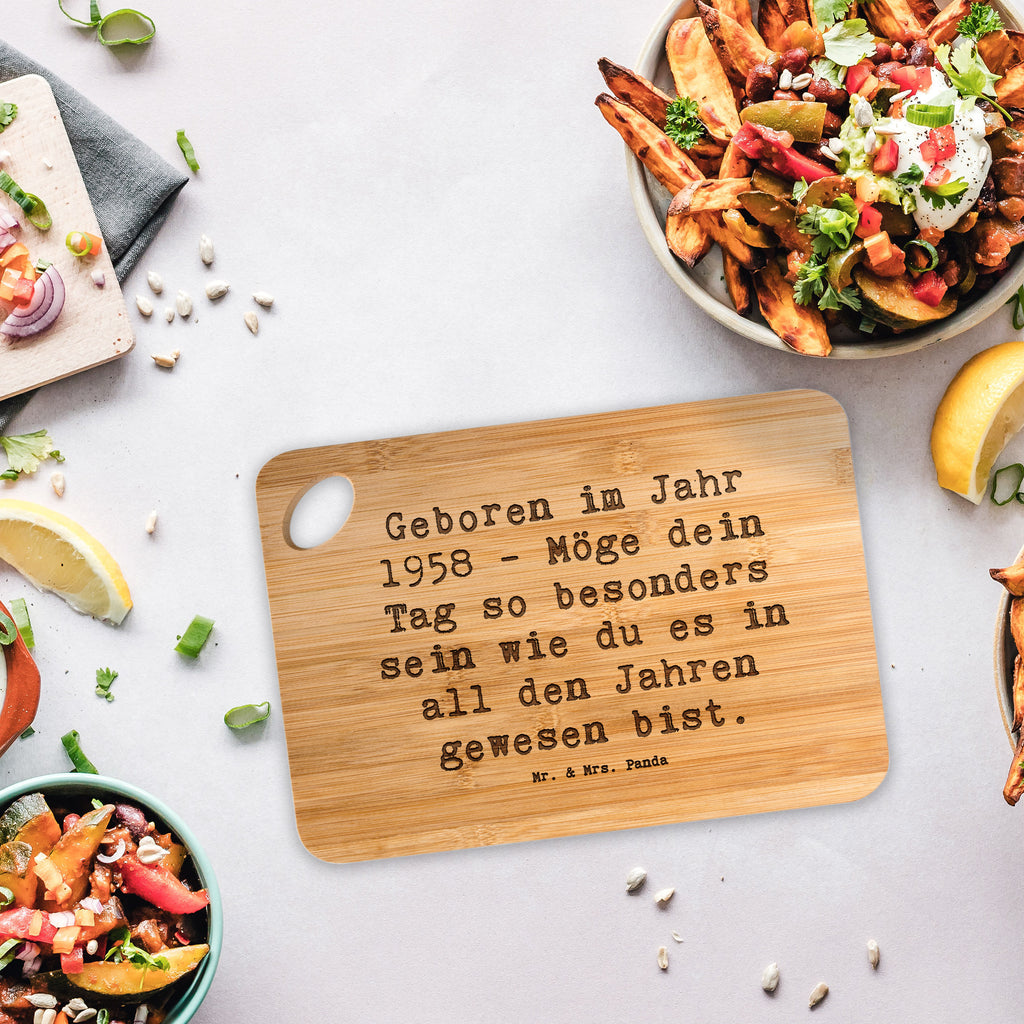 Geboren im Jahr
1958 - Möge dein
Tag so besonders
sein wie du es in
all den Jahren
gewesen bist.
Mr. & Mrs. Panda